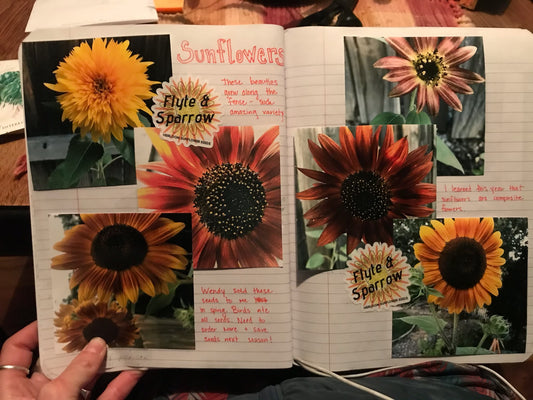 Sunflowers
Flyte &
Sparrow
These beauties
grow along the
fence - such
amazing variety
Wendy sold these
seeds to me
in spring. Birds ate
all seeds. Need to
order more + save
seeds next season!
I learned this year that
sunflowers are composite
flowers.
Flyte &
Sparrow